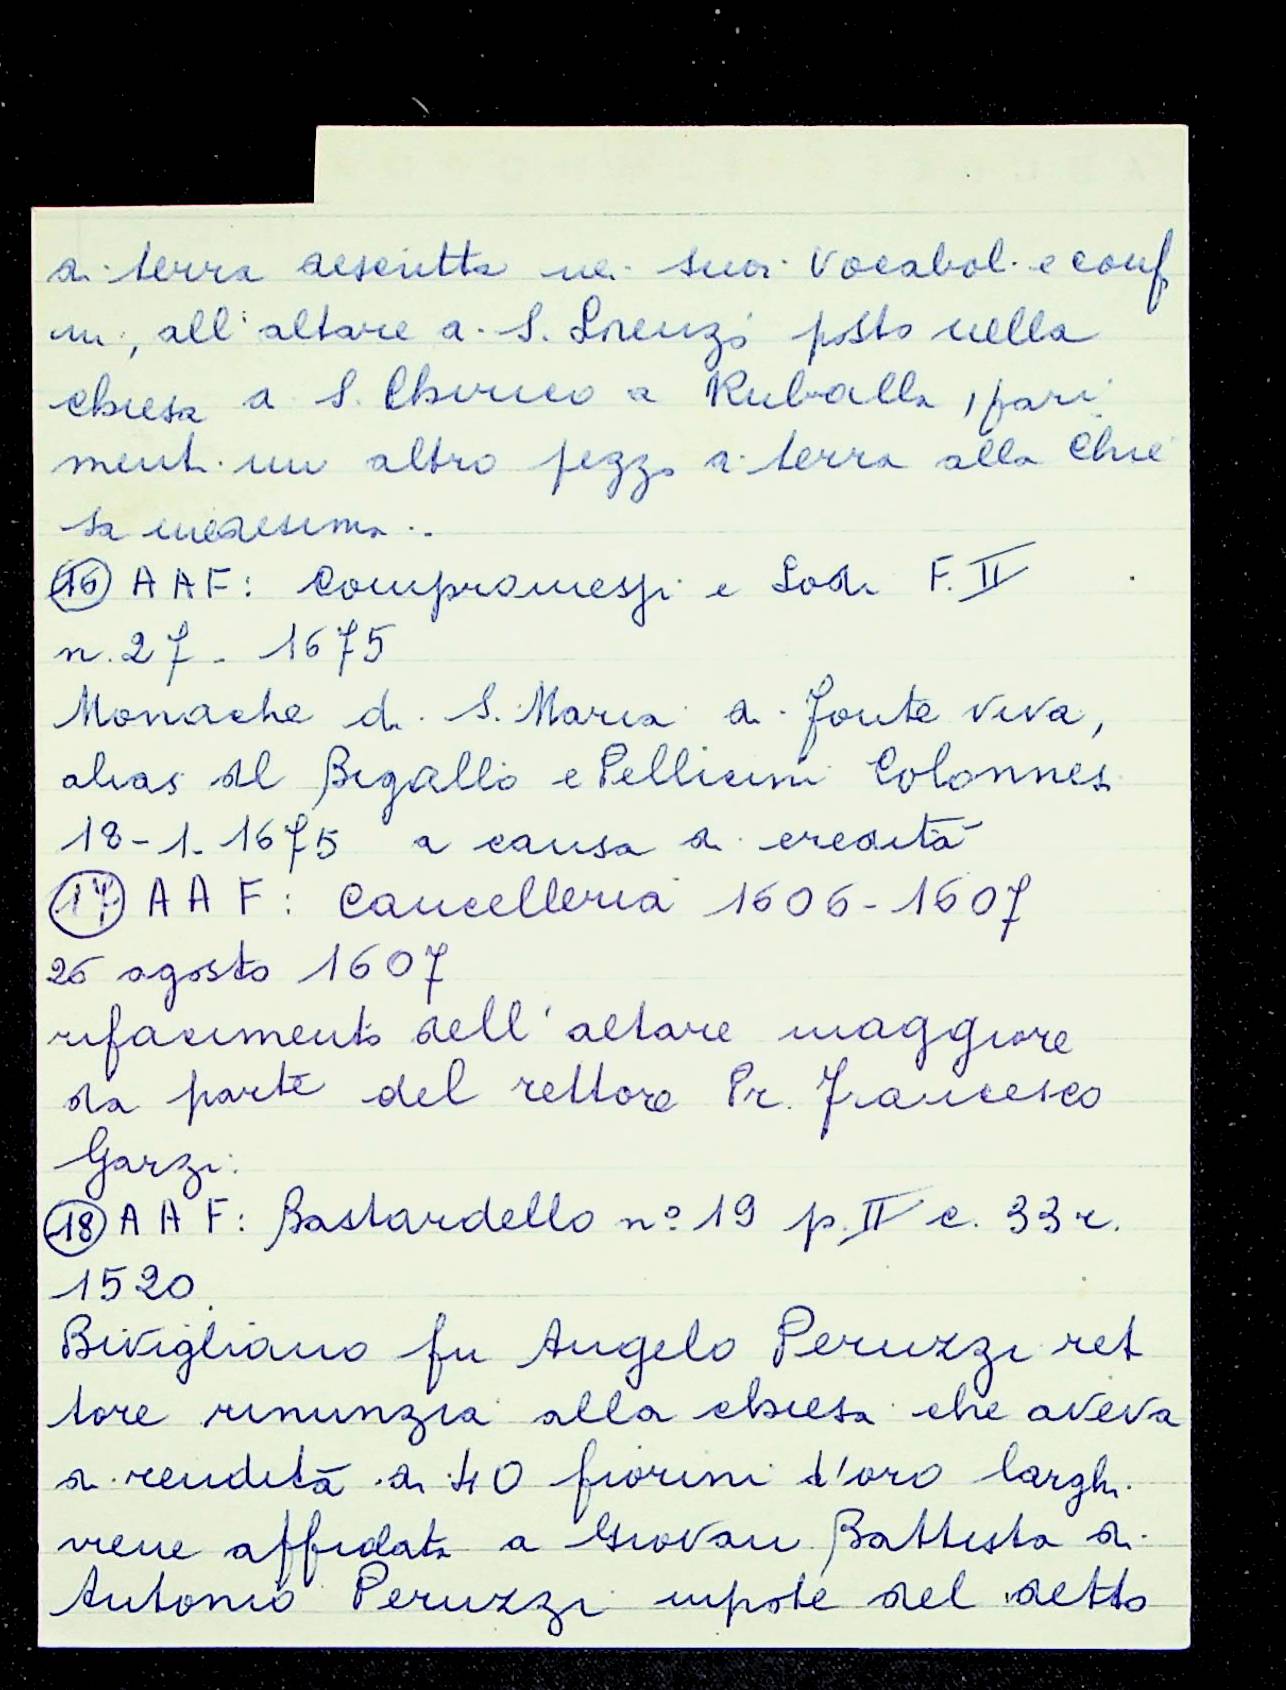 di terra descritta nei suoi vocaboli e conf
ini, all'altare di S. Lorenzo posto nella
chiesa di S. Chirico a Ruballa, pari
menti un altro pezzo di terra alla Chie
sa medesima.
(16) A A F: Compromessi e Lodi F. II
n. 27 - 1675
Monache di S. Maria di Fonte viva,
alias del Bigallo e Pellicini Colonnesi
18-1-1675 a causa di eredità
(17) A A F: Cancelleria 1606-1607
26 agosto 1607
rifacimento dell'altare maggiore
da parte del rettore Pr. Francesco
Garzi.
(18) A A F: Bastardello nº 19 p. II c. 33 r.
1520.
Bivigliano fu Angelo Peruzzi ret
tore rinunzia alla chiesa che aveva
di rendità di 40 fiorini d'oro larghi
viene affidata a Giovan Battista di
Antonio Peruzzi nipote del detto